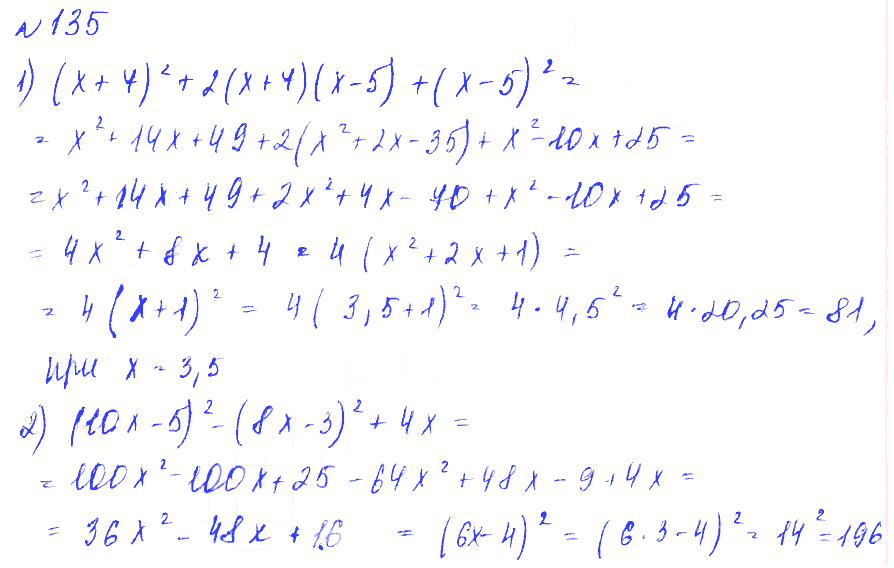 №135
1) (x+7)²+2(x+7)(x-5)+(x-5)²=
= x²+14x+49+2(x²+2x-35)+x²-10x+25=
=x²+14x+49+2x²+4x-70+x²-10x+25=
= 4x²+8x+4 = 4(x²+2x+1) =
= 4(x+1)² = 4(3,5+1)²= 4·4,5²=4·20,25=81,
при x=3,5
2) (10x-5)²-(8x-3)²+4x=
=100x²-100x+25-64x²+48x-9+4x=
= 36x²-48x+16 = (6x-4)²=(6·3-4)²=14²=196